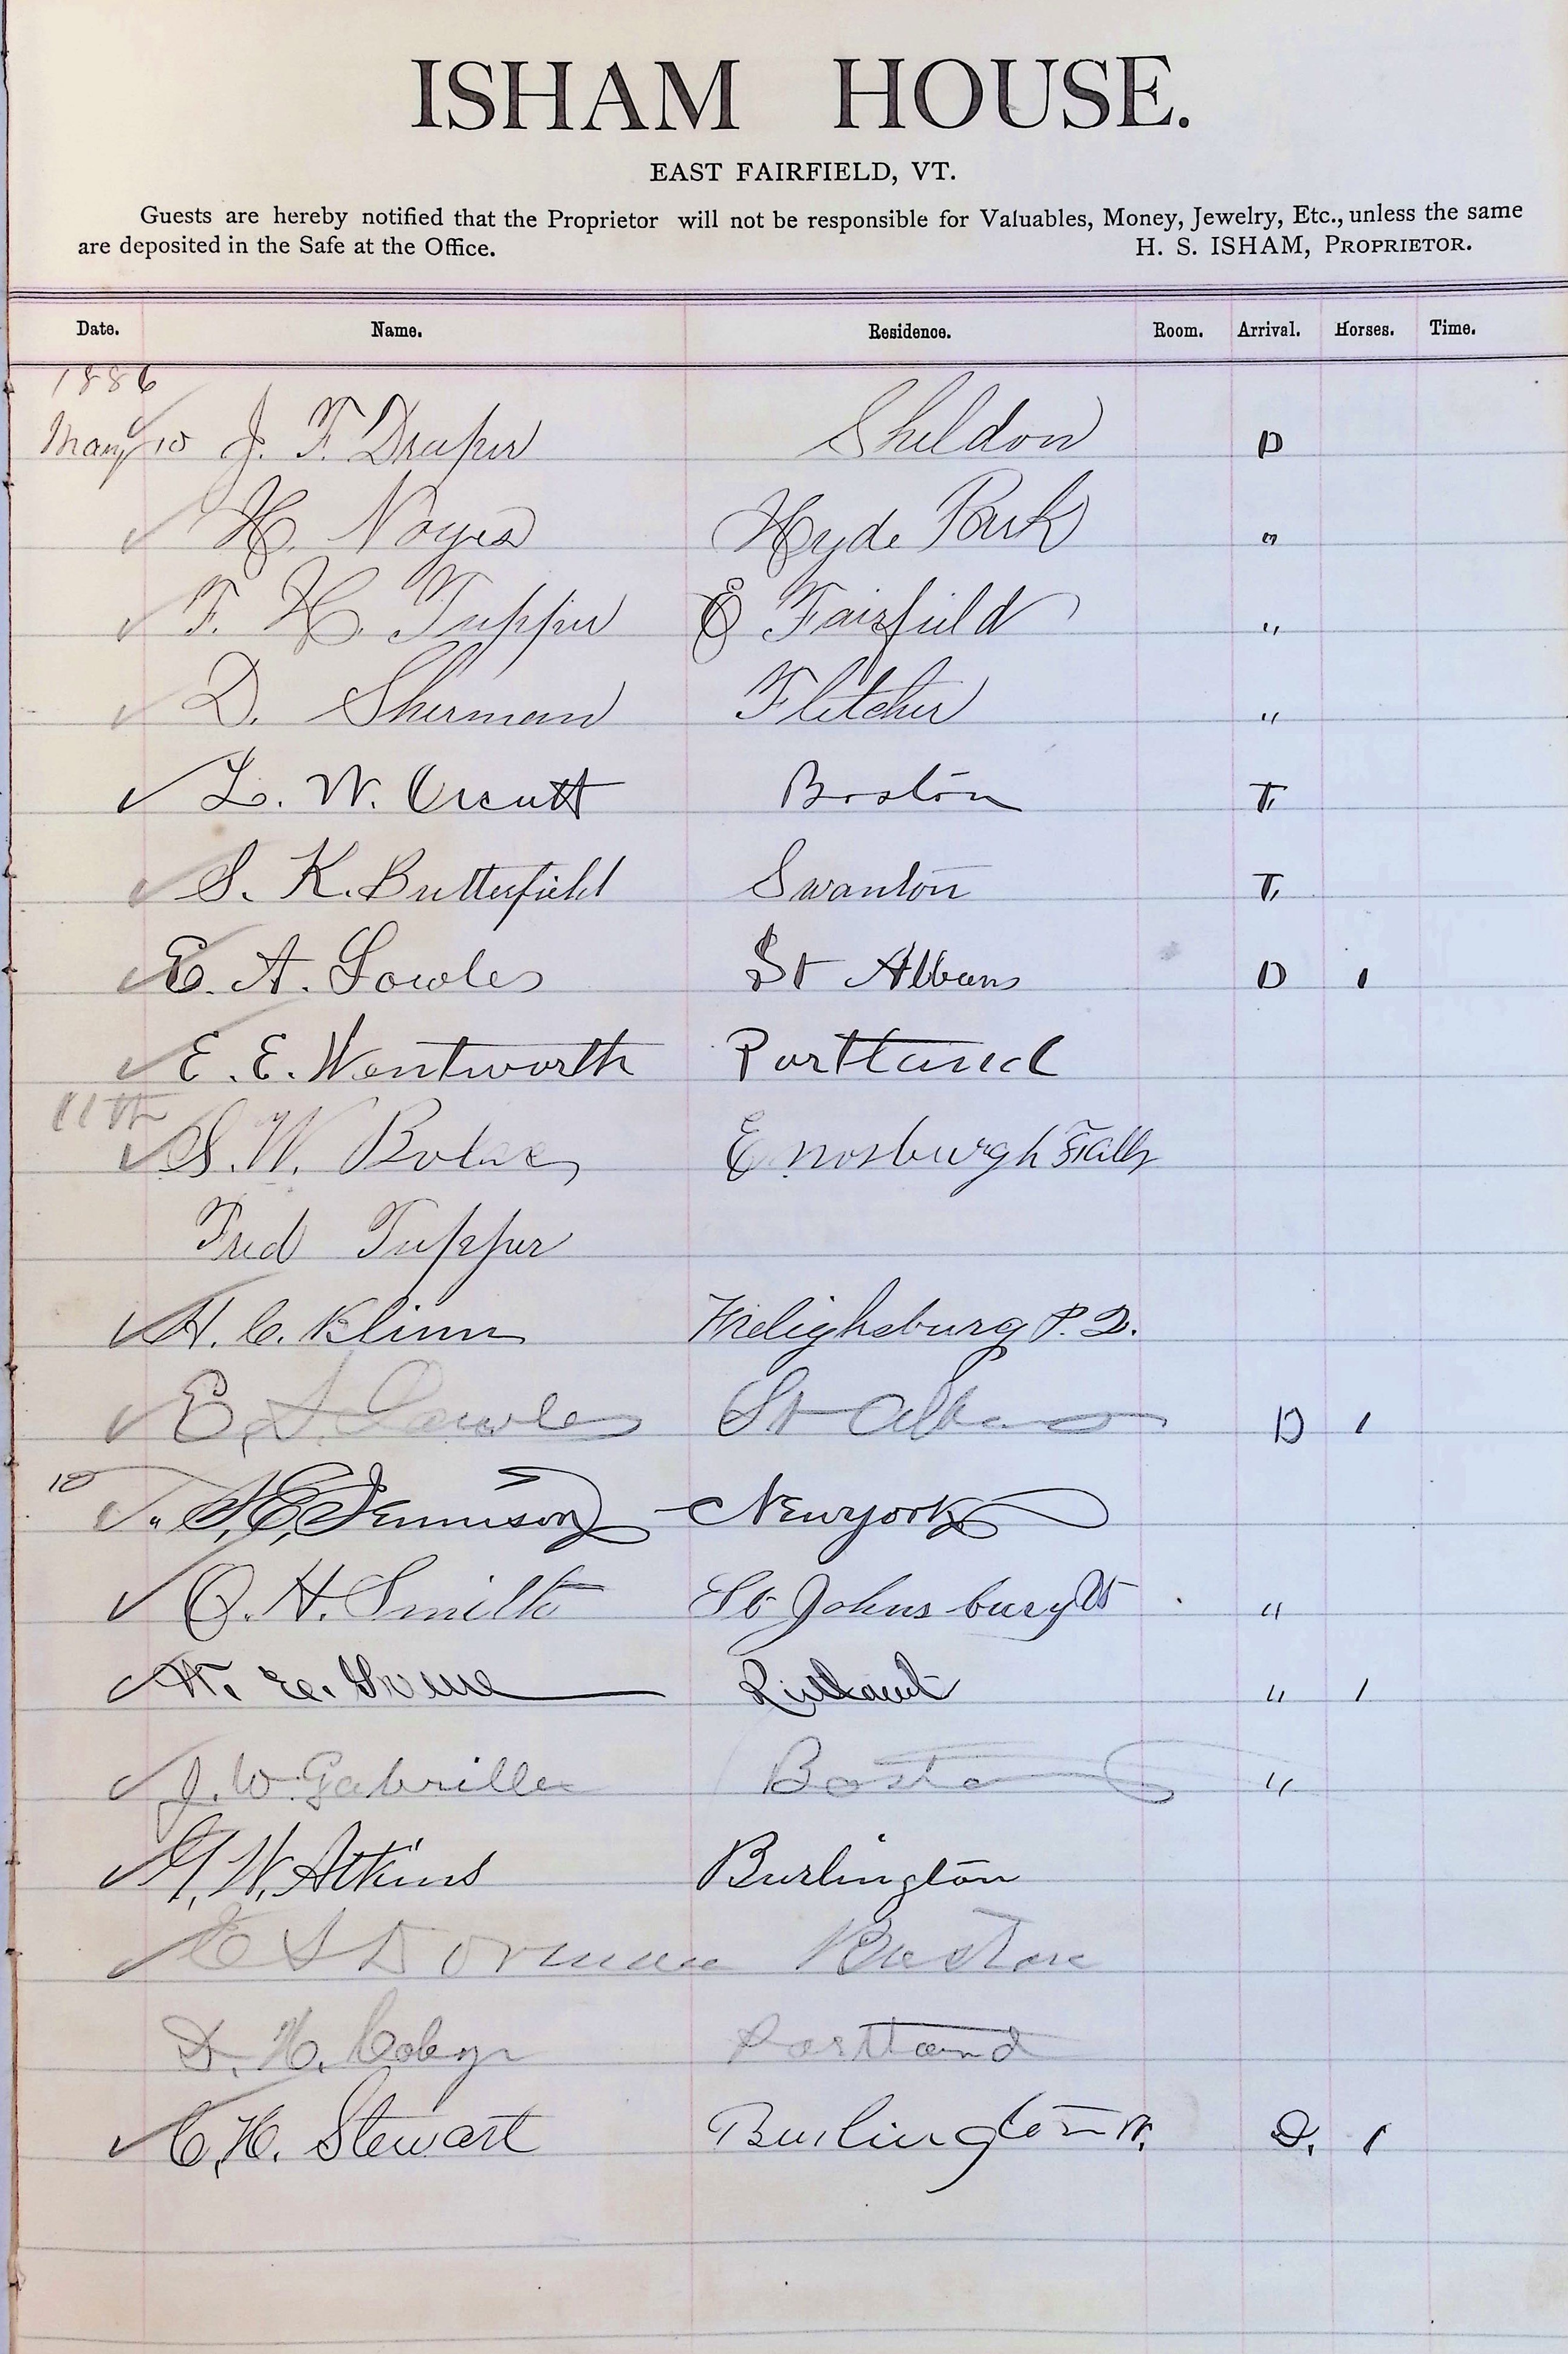 ISHAM HOUSE.
EAST FAIRFIELD, VT.
Guests are hereby notified that the Proprietor will not be responsible for Valuables, Money, Jewelry, Etc., unless the same
are deposited in the Safe at the Office. H. S. ISHAM, PROPRIETOR.
Date. Name. Residence. Room. Arrival. Horses. Time.
1886
May 10 J. F. Draper Sheldon D
✓ H. Noyes Hyde Park "
✓ F. H. Tupper E Fairfield "
✓ D. Sherman Fletcher "
✓ L. W. Orcutt Boston T,
✓ S. K. Butterfield Swanton T,
✓ E. A. Sowles St Albans D 1
✓ E. E. Wentworth Portland
11th
✓ S. W. Enosburgh Falls
Fred Tupper
✓ H. C. Frelighsburg P. Q.
✓ E. S. Sowles St Albans D 1
10 ✓ " Jennison New york
✓ O. H. Smith St Johnsbury Vt "
✓ E. Rutland " 1
✓ J. W. Gabrille Boston "
✓ G. W. Atkins Burlington
✓ E S Dorman Boston
D. H. Portland
✓ C. H. Stewart Burlington Vt. D. 1